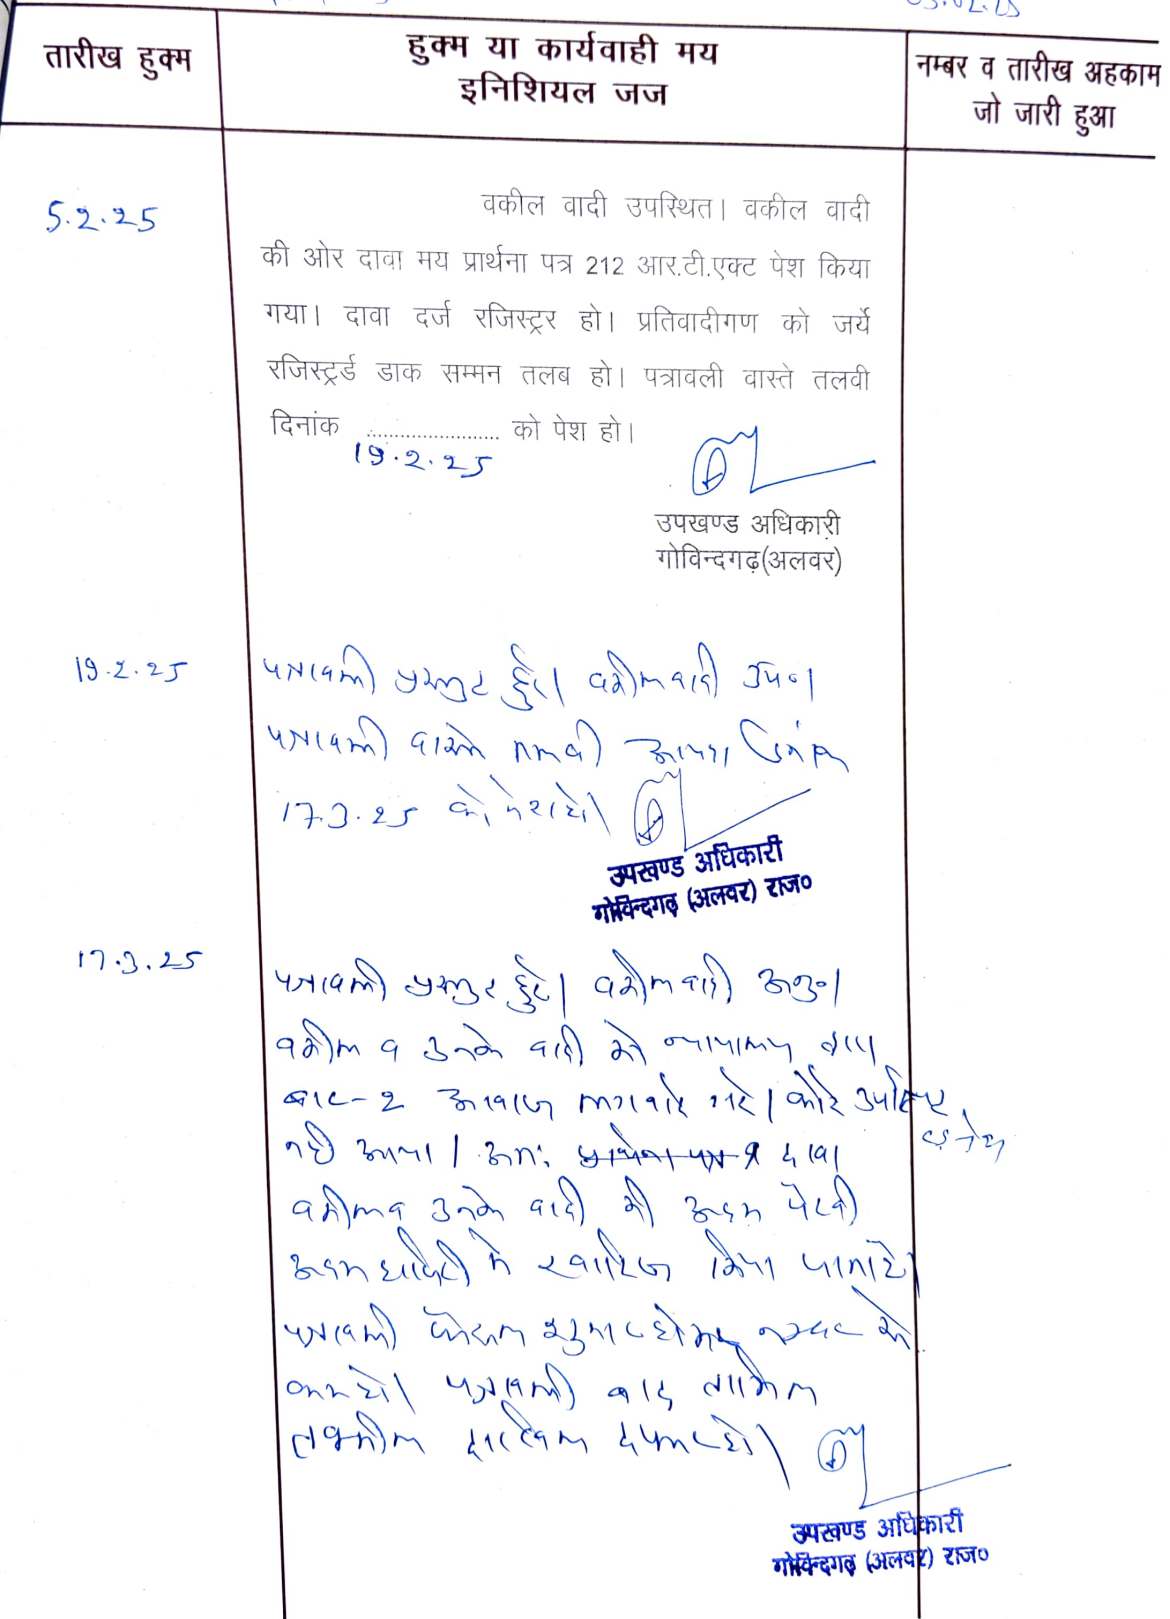 03.02.25
तारीख हुक्म
हुक्म या कार्यवाही मय
इनिशियल जज
नम्बर व तारीख अहकाम
जो जारी हुआ
5.2.25
वकील वादी उपस्थित। वकील वादी
की ओर दावा मय प्रार्थना पत्र 212 आर.टी.एक्ट पेश किया
गया। दावा दर्ज रजिस्ट्रर हो। प्रतिवादीगण को जर्ये
रजिस्ट्रर्ड डाक सम्मन तलब हो। पत्रावली वास्ते तलवी
दिनांक ........................ को पेश हो।
19.2.25
उपखण्ड अधिकारी
गोविन्दगढ़(अलवर)
19.2.25
पत्रावली प्रस्तुत हुई। वकील वादी उप०।
पत्रावली वास्ते तलवी आयन्दा दिनांक
17.3.25 को पेश हो।
उपखण्ड अधिकारी
गोविन्दगढ़ (अलवर) राज०
17.3.25
पत्रावली प्रस्तुत हुई। वकील वादी अनु०।
वकील व उनके वादी को न्यायालय द्वारा
बार-2 आवाज लगवाई गई। कोई उपस्थित
नही आया। अतः प्रार्थना पत्र व दावा
वकील व उनके वादी की अदम पैरवी
अदम हाजिरी मे खारिज किया जाता है।
पत्रावली फैसल शुमार होकर नम्बर से
कम हो। पत्रावली बाद तामिल
तकमील दाखिल दफ्तर हो।
उपखण्ड अधिकारी
गोविन्दगढ़ (अलवर) राज०